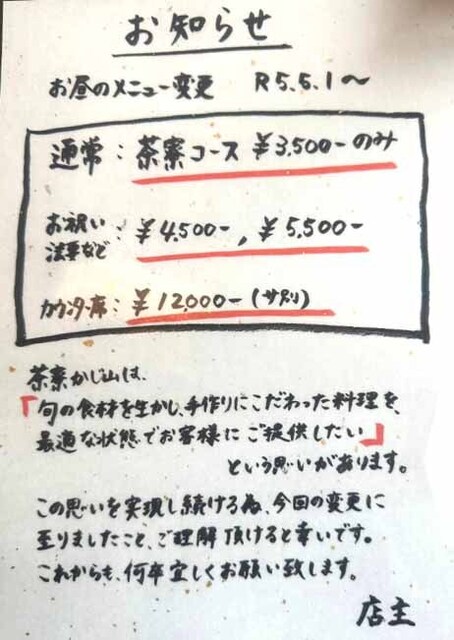 お知らせ
お昼のメニュー変更 R5.5.1〜
通常：茶寮コース ¥3,500-のみ
お祝い
法要など：¥4,500-, ¥5,500-
カウンター席：¥12,000-(サ別)
茶寮かじ山は、
「旬の食材を生かし、手作りにこだわった料理を、
最適な状態でお客様にご提供したい」
という思いがあります。
この思いを実現し続ける為、今回の変更に
至りましたこと、ご理解頂けると幸いです。
これからも、何卒宜しくお願い致します。
店主